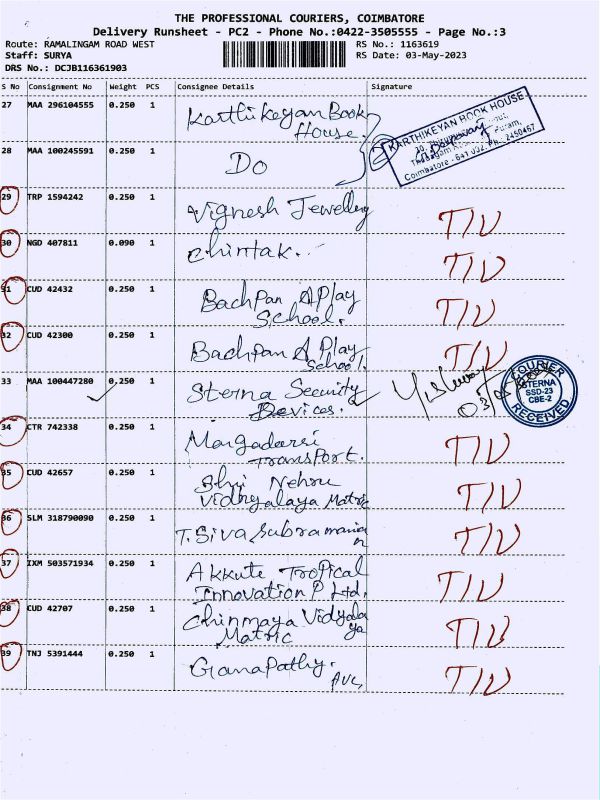 THE PROFESSIONAL COURIERS, COIMBATORE
Delivery Runsheet - PC2 - Phone No.:0422-3505555 - Page No.:3
Route: RAMALINGAM ROAD WEST RS No.: 1163619
Staff: SURYA RS Date: 03-May-2023
DRS No.: DCJB116361903
S No Consignment No Weight PCS Consignee Details Signature
27 MAA 296104555 0.250 1 Karthikeyan Book
House.
KARTHIKEYAN BOOK HOUSE
Coimbatore - 641 002. Ph.: 2450467
28 MAA 100245591 0.250 1 Do
29 TRP 1594242 0.250 1 Vignesh Jewellery T/U
30 NGD 407811 0.090 1 Chintak. T/U
31 CUD 42432 0.250 1 Bachpan A Play
School. T/U
32 CUD 42300 0.250 1 Bachpan A Play
School. T/U
33 MAA 100447280 0.250 1 Sterna Security
Devices.
COURIER
STERNA
SSD-23
CBE-2
RECEIVED
34 CTR 742338 0.250 1 Margadarsi
Transport. T/U
35 CUD 42657 0.250 1 Shri Nehru
Vidhyalaya Matric T/U
36 SLM 318790090 0.250 1 T. Siva Subramania
n T/U
37 IXM 503571934 0.250 1 Akkute Tropical
Innovation P Ltd. T/U
38 CUD 42707 0.250 1 Chinmaya Vidyala
ya
Matric T/U
39 TNJ 5391444 0.250 1 Ganapathy.
Ave, T/U